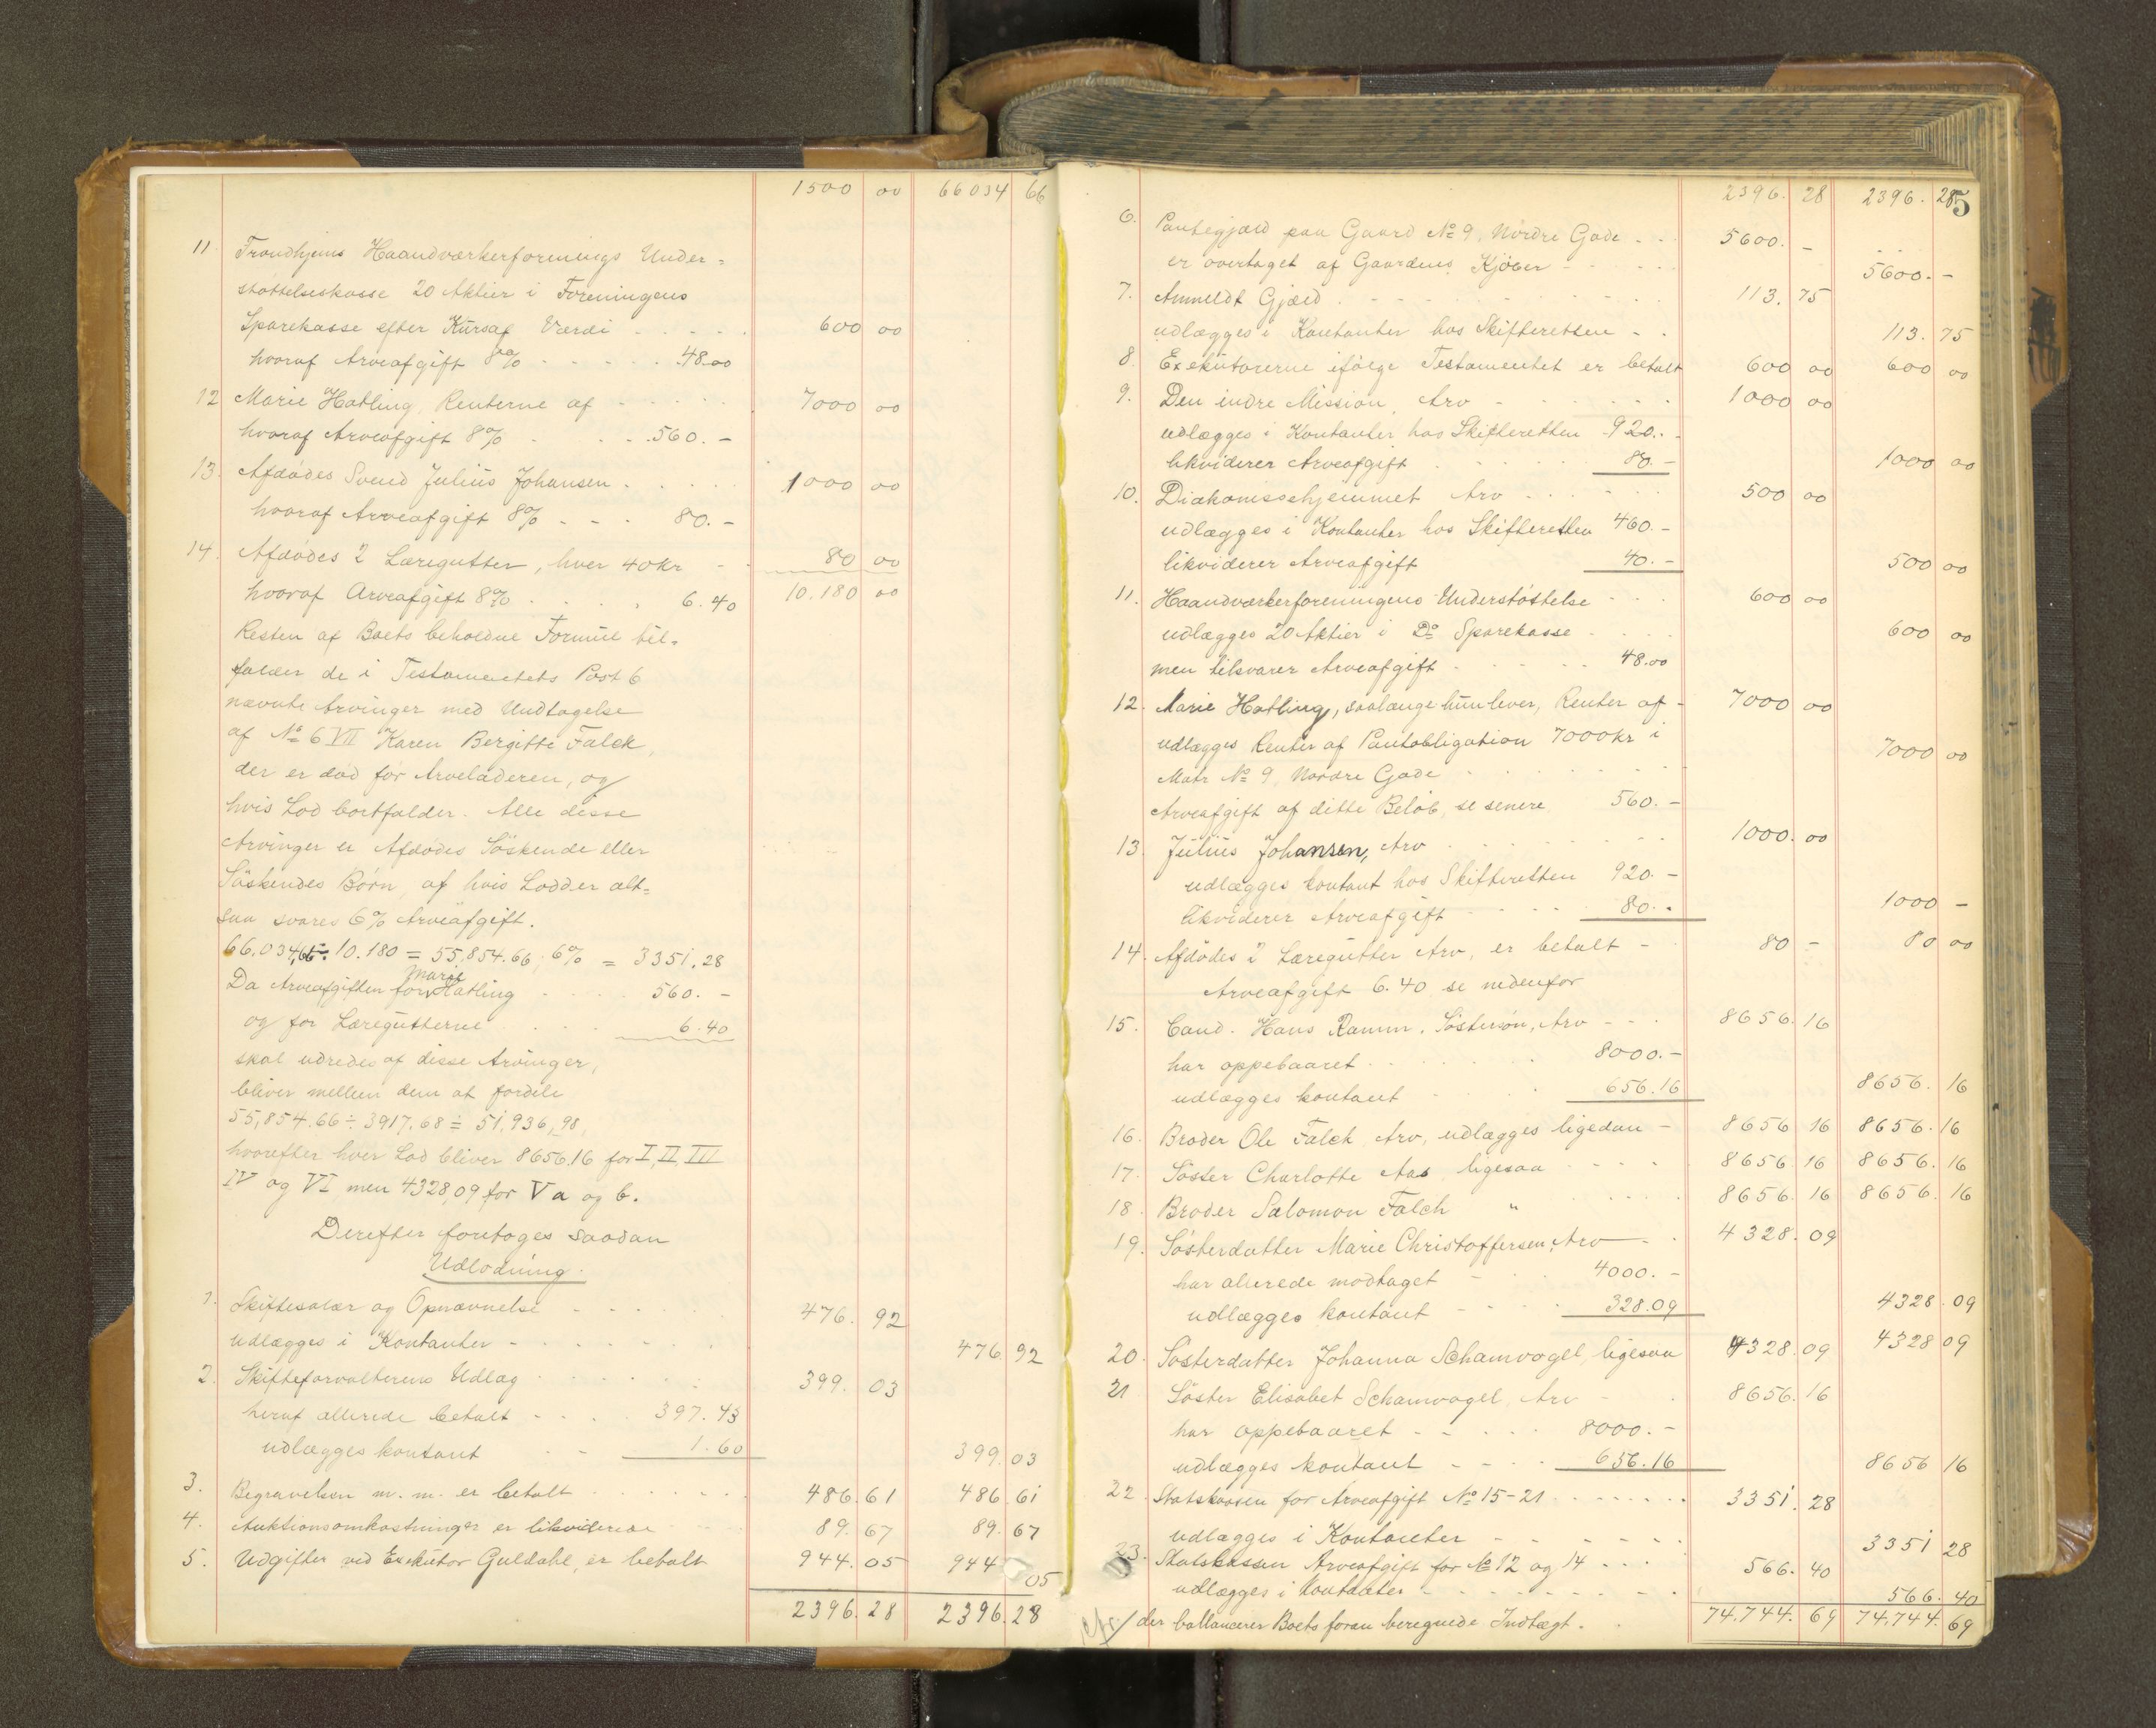 1500 00 66034 66
11. Trondhjems Haandværkerforenings Under=
støttelseskasse 20 Aktier i Foreningens
Sparekasse efter Kursaf Værdi 600 00
hvoraf Arveafgift 8% 48.00
12 Marie Hatling, Renterne af 7000 00
hvoraf Arveafgift 8% 560.-
13. Afdødes Svend Julius Johansen 1000 00
hvoraf Arveafgift 8% 80.-
14. Afdødes 2 Læregutter, hver 40 kr 80 00
hvoraf Arveafgift 8% 6.40 10.180 00
Resten af Boets beholdne Formue til=
falder de i Testamentets Post 6
nævnte Arvinger med Undtagelse
af No 6 VII Karen Bergitte Falck,
der er død før Arveladeren, og
hvis Lod bortfalder. Alle disse
Arvinger er Afdødes Söskende eller
Söskendes Børn, af hvis Lodder alt=
saa svares 6% Arveafgift.
66.034,66 ÷ 10.180 = 55,854.66; 6% = 3351.28
Da Arveafgiften for Marie Hatling 560.-
og for Læregutterne 6.40
skal udredes af disse Arvinger,
bliver mellem dem at fordele
55,854.66 ÷ 3917.68 = 51,936,98,
hvorefter hver Lod bliver 8656.16 for I, II, III
IV og VI men 4328,09 for V a og b.
Derefter foretages saadan
Udlodning.
1. Skiftesalær og Opnævnelse 476. 92
udlægges i Kontanter 476 92
2. Skifteforvalterens Udlæg 399. 03
heraf allerede betalt 397.43
udlægges kontant 1.60 399 03
3. Begravelsen m. m. er betalt 486 61 486 61
4. Auktionsomkostninger er likviderede 89. 67 89. 67
5. Udgifter ved Exekutor Guldahl, er betalt 944. 05 944 05
2396. 28 2396. 28
2396. 28 2396. 28
5
6. Pantegjæld paa Gaard No 9, Nordre Gade 5600. -
er overtaget af Gaardens Kjöber 5600. -
7. Anmeldt Gjæld 113. 75
udlægges i Kontanter hos Skifteretten 113. 75
8 Exekutorerne ifølge Testamentet er betalt 600 00 600 00
9. Den indre Mission, Arv 1000 00
udlægges i Kontanter hos Skifteretten 920.-
likviderer Arveafgift 80.- 1000 00
10. Diakonissehjemmet Arv 500 00
udlægges i Kontanter hos Skifteretten 460.-
likviderer Arveafgift 40.- 500 00
11. Haandværkerforeningens Understøttelse 600 00
udlægges 20 Aktier i Do Sparekasse 600 00
men tilsvarer Arveafgift 48.00
12. Marie Hatling, saalænge hun lever, Renter af 7000 00
udlægges Renter af Pantobligation 7000 kr i
Matr No 9, Nordre Gade 7000 00
Arveafgift af dette Beløb, se senere 560.-
13. Julius Johansen, Arv 1000. 00
udlægges kontant hos Skifteretten 920.-
likviderer Arveafgift 80.- 1000 -
14. Afdødes 2 Læregutter Arv, er betalt 80 - 80 00
Arveafgift 6.40 se nedenfor
15. Cand. Hans Ramm, Søstersøn, Arv 8656. 16
har oppebaaret 8000.-
udlægges kontant 656.16 8656. 16
16. Broder Ole Falck Arv, udlægges ligedan 8656 16 8656. 16
17. Söster Charlotte Aas ligesaa 8656 16 8656. 16
18. Broder Salomon Falch " 8656. 16 8656. 16
19. Sösterdatter Marie Christoffersen, Arv 4328. 09
har allerede modtaget 4000.-
udlægges kontant 328.09 4328. 09
20. Søsterdatter Johanna Schamvogel ligesaa 4328. 09 4328 09
21 Söster Elisabet Schamvogel, Arv 8656. 16
har oppebaaret 8000.-
udlægges kontant 656.16 8656 16
22. Statskassen for Arveafgift No 15-21 3351. 28
udlægges i Kontanter 3351 28
23. Statskassen Arveafgift for No 12 og 14 566. 40
udlægges i Kontanter 566. 40
der ballancerer Boets foran beregnede Indtægt. 74.744. 69 74.744. 69